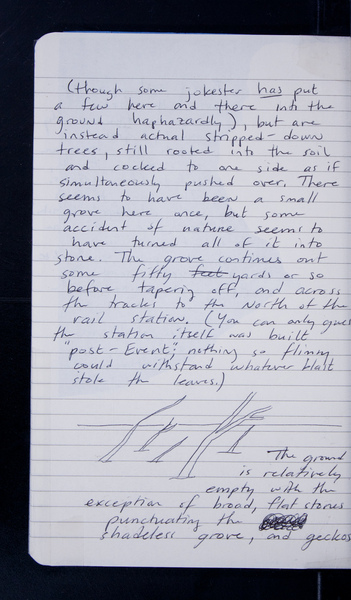 (though some jokester has put
a few here and there into the
ground haphazardly), but are
instead actual stripped-down
trees, still rooted into the soil
and cocked to one side as if
simultaneously pushed over. There
seems to have been a small
grove here once, but some
accident of nature seems to
have turned all of it into
stone. The grove continues out
some fifty feet yards or so
before tapering off, and across
the tracks to the North of the
rail station. (You can only guess
the station itself was built
"post-Event"; nothing so flimsy
would withstand whatever blast
stole the leaves.)
The ground
is relatively
empty with the
exception of broad, flat stones
punctuating the
shadeless grove, and geckos